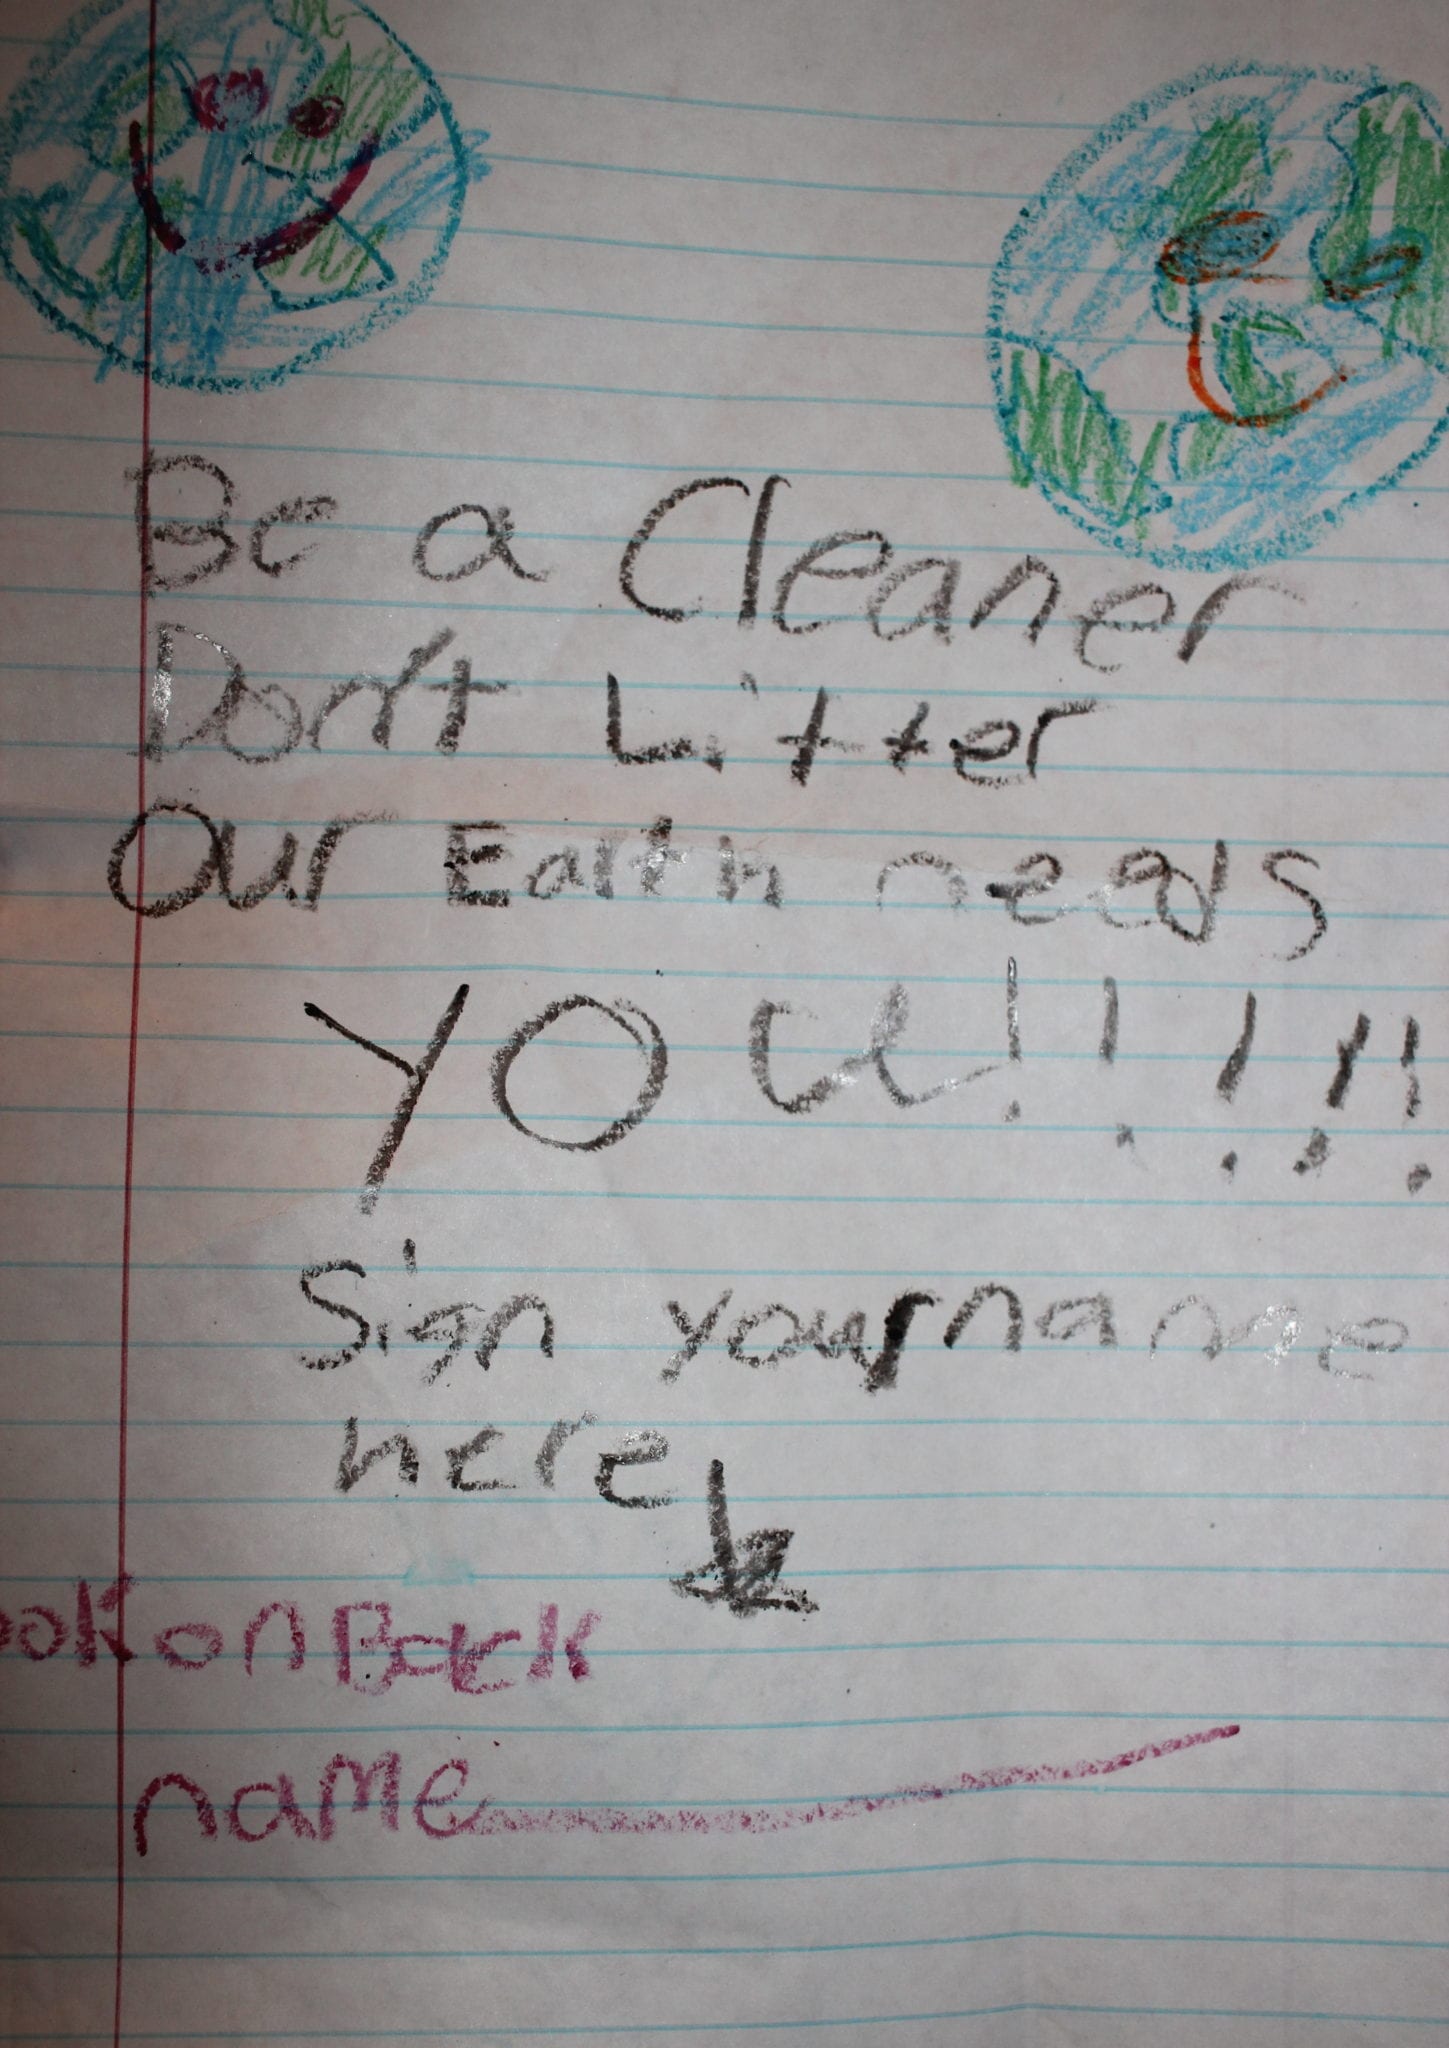 Be a Cleaner
Don't Litter
Our Earth needs
YOU!!!!!
Sign your name
here
on Back
name